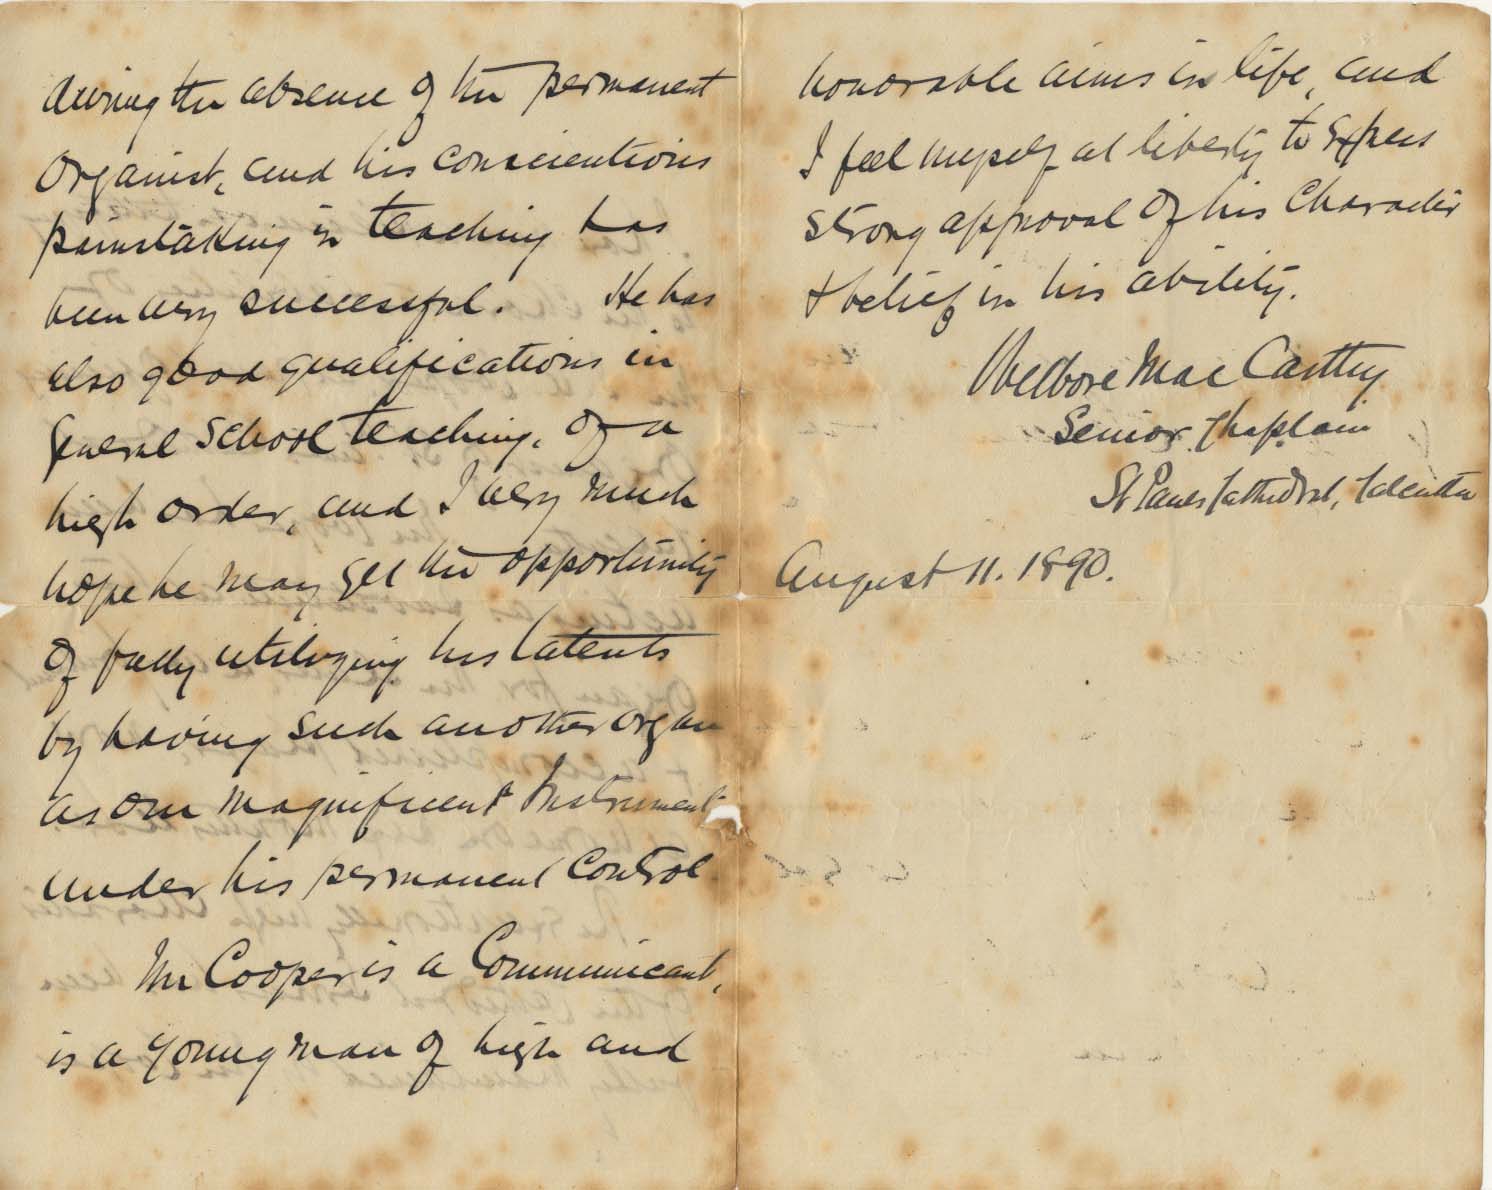 during the absence of the permanent
organist, and his conscientious
painstaking in teaching has
been very successful. He has
also good qualifications in
general School teaching, of a
high order, and I very much
hope he may get the opportunity
of fully utilizing his talents
by having such another organ
as our magnificent Instrument
under his permanent Control.
Mr Cooper is a Communicant,
is a young man of high and
honorable aims in life, and
I feel myself at liberty to express
strong approval of his Character
& belief in his ability.
Welbore MacCarthy
Senior Chaplain
St Pauls Cathedral, Calcutta
August 11. 1890.